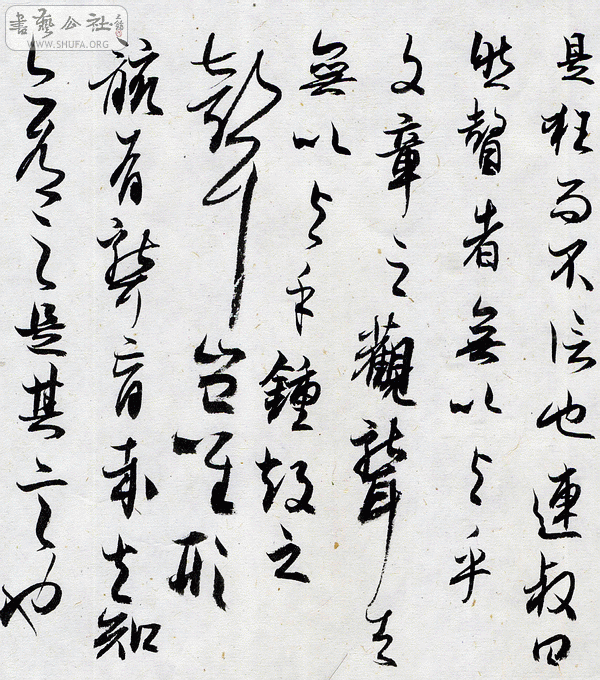 書藝公社
WWW.SHUFA.ORG
是狂而不信也連叔曰
然瞽者無以与乎
文章之觀聾者
無以与乎鍾鼓之
聲豈唯形
骸有聾盲哉夫知
亦有之是其言也